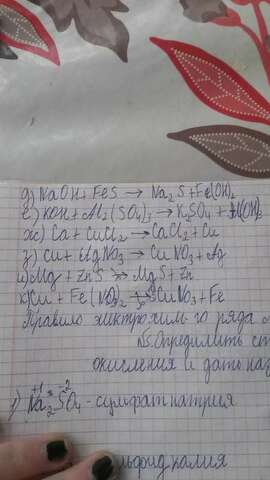 д) NaOH + FeS → Na₂S + Fe(OH)₂
е) KOH + Al₂(SO₄)₃ → K₂SO₄ + Al(OH)₃
ж) Ca + CuCl₂ → CaCl₂ + Cu
з) Cu + AgNO₃ → CuNO₃ + Ag
и) Mg + ZnS → MgS + Zn
к) Cu + Fe(NO₃)₂ CuNO₃ + Fe
Правило электрохим-го ряда
№5. Определить
окисления и дать наз
1) Na₂SO₄ - сульфат натрия
льфид калия